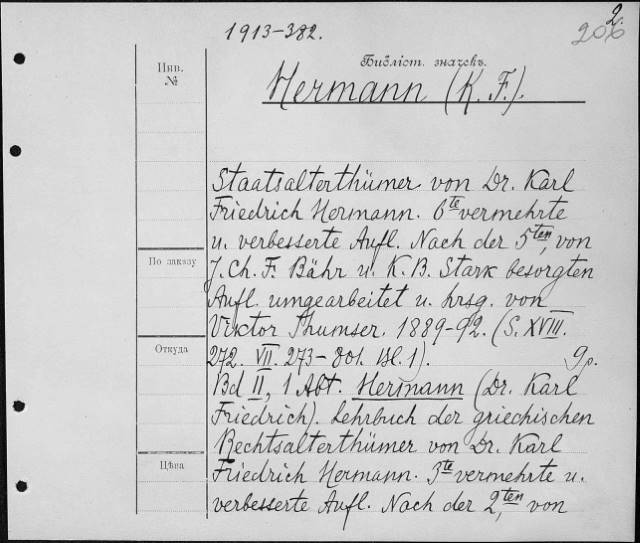 1913-382.
2.
206
Инв.
№
Библіот. значекъ.
Hermann (K. F.).
Staatsalterthümer von Dr. Karl
Friedrich Hermann. 6te vermehrte
u. verbesserte Aufl. Nach der 5ten, von
По заказу
J. Ch. F. Bähr u. K. B. Stark besorgten
Aufl. umgearbeitet u. hrsg. von
Viktor Thumser. 1889-92. (S. XVIII.
Откуда
272. VII. 273-801. Bl. 1). 9 p.
Bd II, 1 Abt. Hermann (Dr. Karl
Friedrich). Lehrbuch der griechischen
Rechtsalterthümer von Dr. Karl
Цѣна
Friedrich Hermann. 3te vermehrte u.
verbesserte Aufl. Nach der 2ten, von